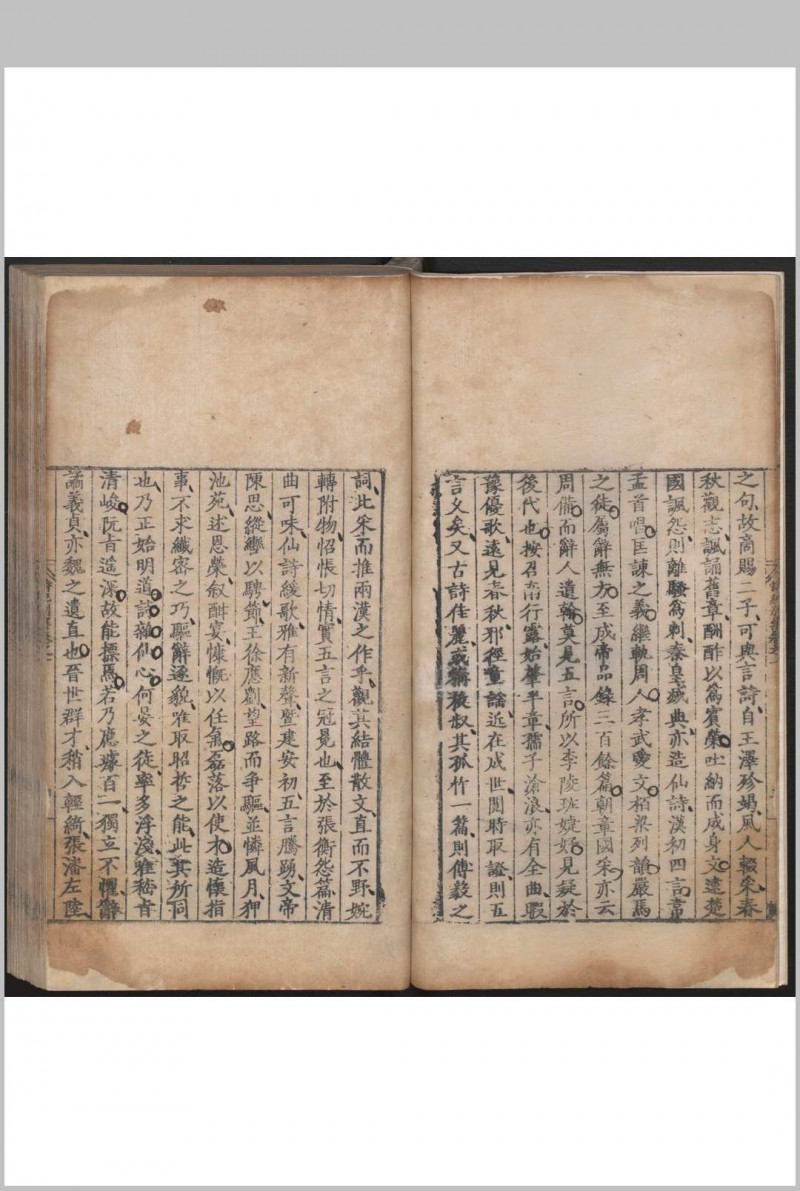 之句故商賜二子可與言詩自王澤殄竭風人輟采春
秋觀志諷誦舊章酬酢以爲賓榮吐納而成身文逮楚
國諷怨則離騷爲刺秦皇滅典亦造仙詩漢初四言韋
孟首唱匡諫之義繼軌周人孝武愛文柏梁列韻嚴馬
之徒屬辭無方至成帝品錄三百餘篇朝章國采亦云
周備而辭人遺翰莫見五言所以李陵班婕妤見疑於
後代也按召南行露始肇半章孺子滄浪亦有全曲暇
豫優歌遠見春秋邪徑童謠近在成世閱時取證則五
言久矣又古詩佳麗或稱枚叔其孤竹一篇則傅毅之
詞此宋而推兩漢之作乎觀其結體散文直而不野婉
轉附物怊悵切情實五言之冠冕也至於張衡怨篇清
曲可味仙詩緩歌雅有新聲暨建安初五言騰踴文帝
陳思縱轡以騁節王徐應劉望路而爭驅並憐風月狎
池苑述恩榮叙酣宴慷慨以任氣磊落以使才造懷指
事不求纖密之巧驅辭逐貌唯取昭晢之能此其所同
也乃正始明道詩雜仙心何晏之徒率多浮淺唯嵇旨
清峻阮旨遥深故能摽焉若乃應璩百一獨立不懼辭
譎義貞亦魏之遺直也晉世群才稍入輕綺張潘左陸